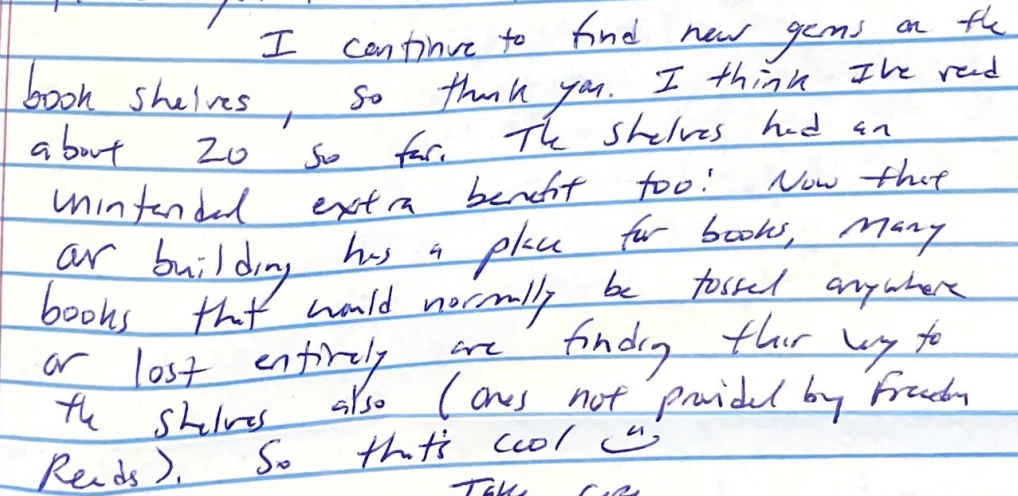 I continue to find new gems on the
book shelves, so thank you. I think I've read
about 20 so far. The shelves had an
unintended extra benefit too! Now that
our building has a place for books, many
books that would normally be tossed anywhere
or lost entirely are finding their way to
the shelves also (ones not provided by Freedom
Reads). So that's cool
Take care